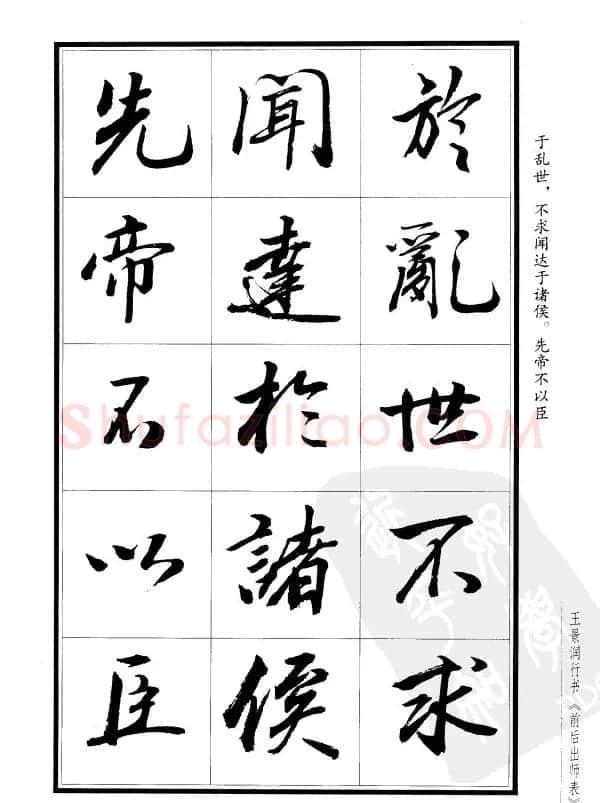 於亂世不求
聞達於諸侯
先帝不以臣
于乱世，不求闻达于诸侯。先帝不以臣
王景润行书《前后出师表》
Shufaziliao.COM